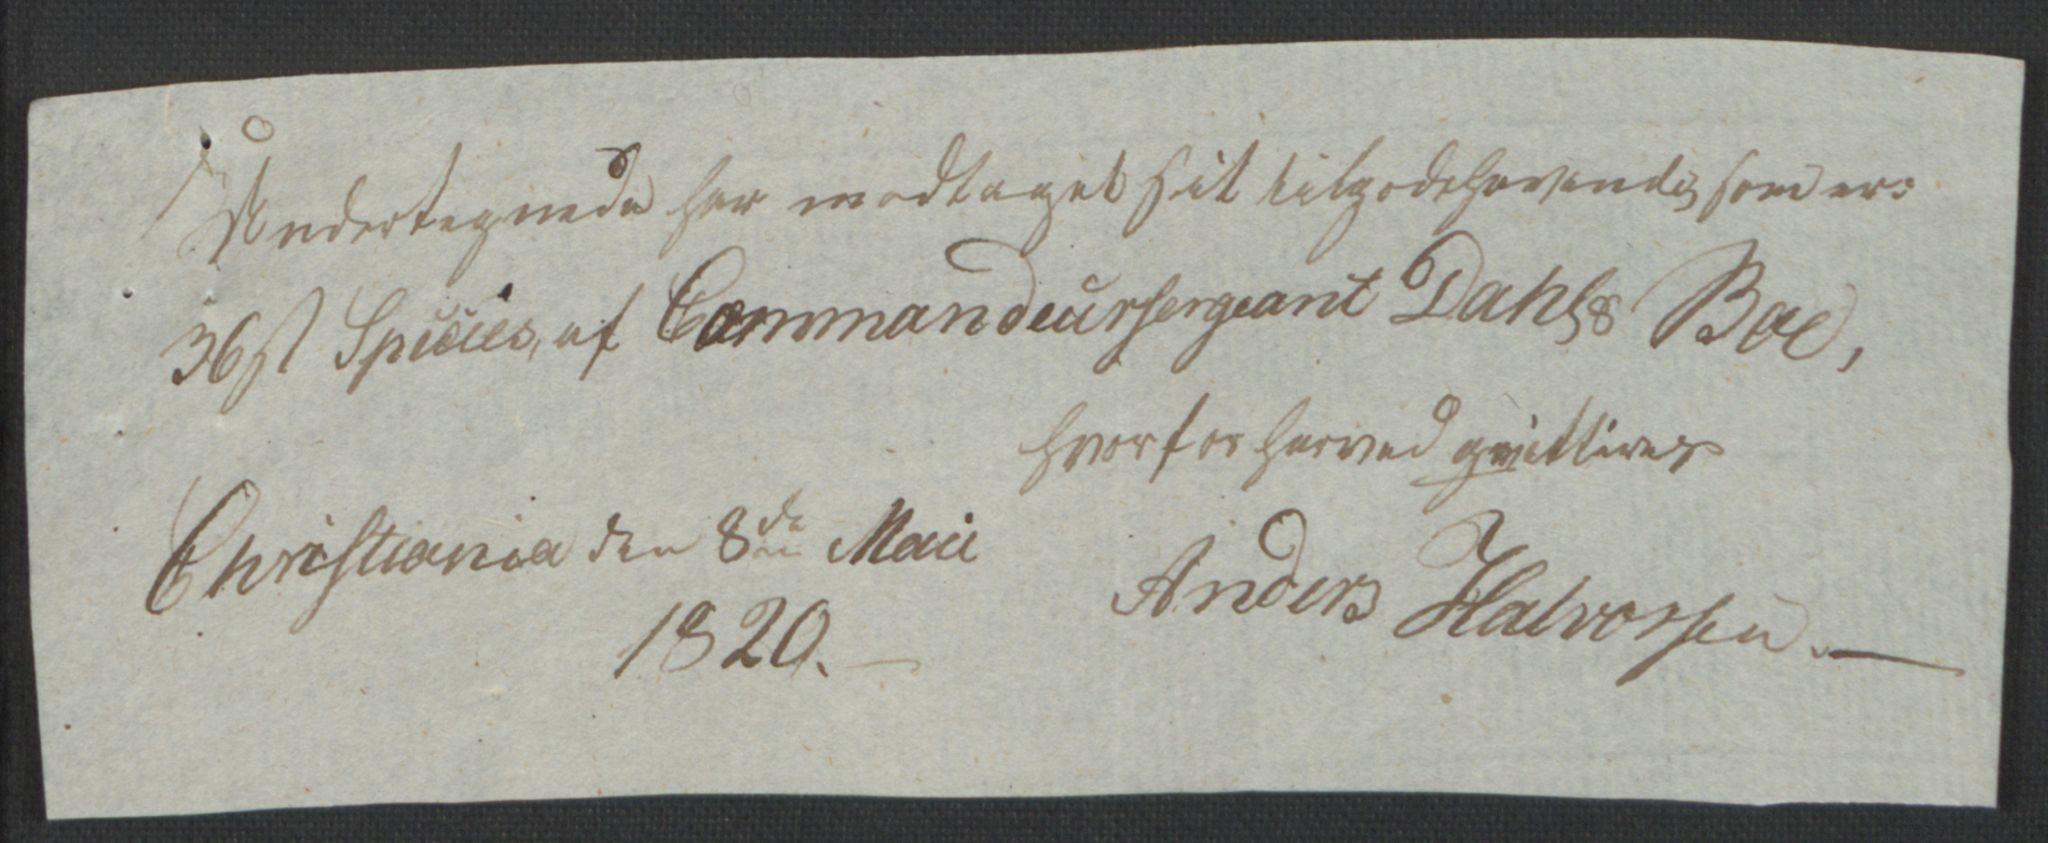 Undertegnede har modtaget sit tilgodehavende, som er:
36 ß Species, af Commandeursergeant Dahls Boe,
hvorfor herved qvitteres
Christiania den 8de Maii
1820.
Anders Halvorsen. —